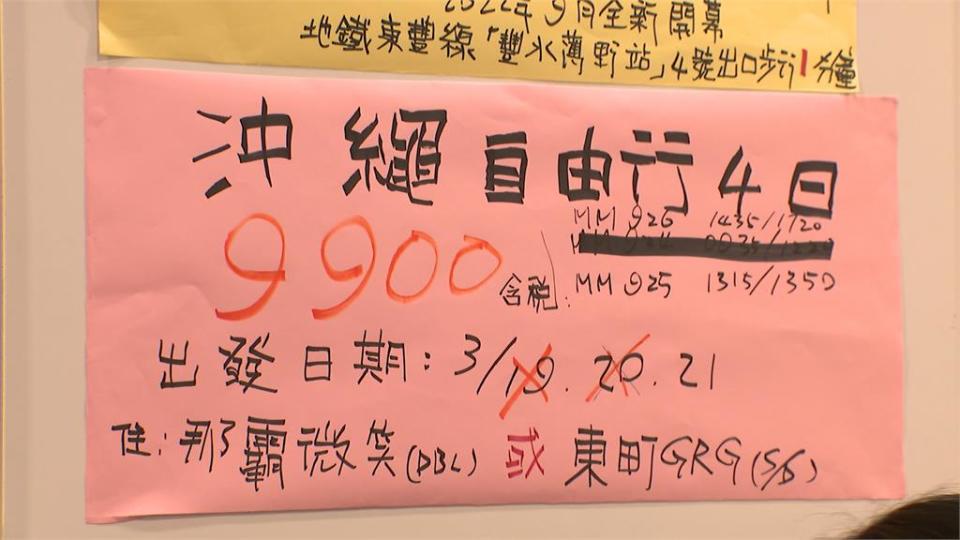 2022年9月全新開幕
地鐵東豐線「豐水薄野站」4號出口步行1分鐘
沖繩自由行4日
MM 926 1435/1720
9900含稅:
MM 925 1315/1350
出發日期:3/19.20.21
住:那霸微笑(DBL)或東町GRG(S/S)